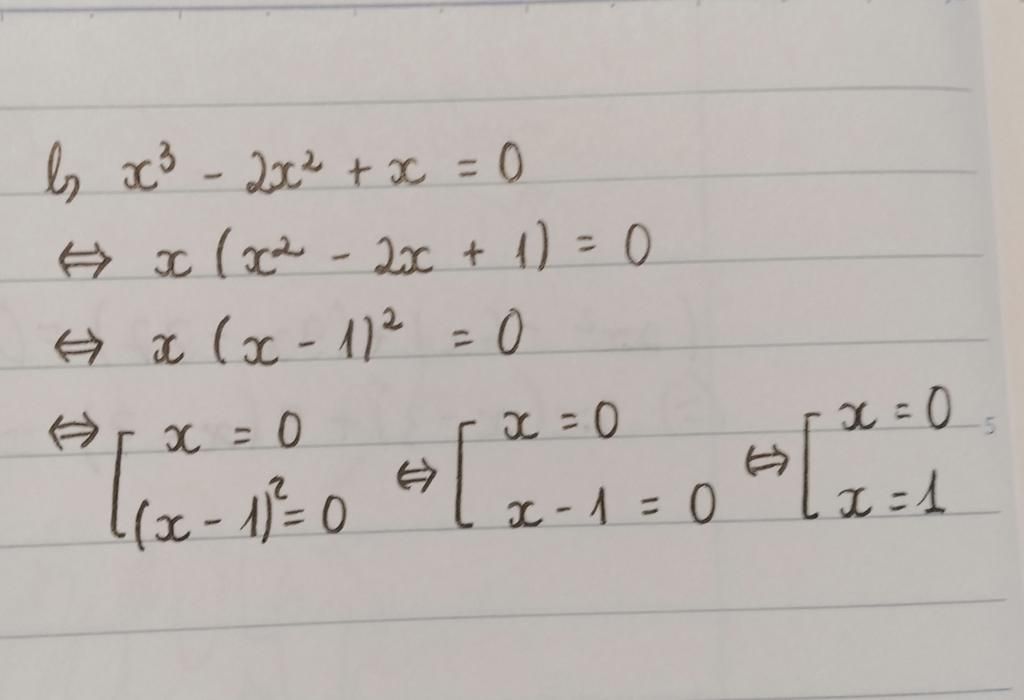 b, x³ - 2x² + x = 0
⇔ x (x² - 2x + 1) = 0
⇔ x (x - 1)² = 0
⇔ [ x = 0 ⇔ [ x = 0 ⇔ [ x = 0
(x - 1)² = 0 x - 1 = 0 x = 1
5